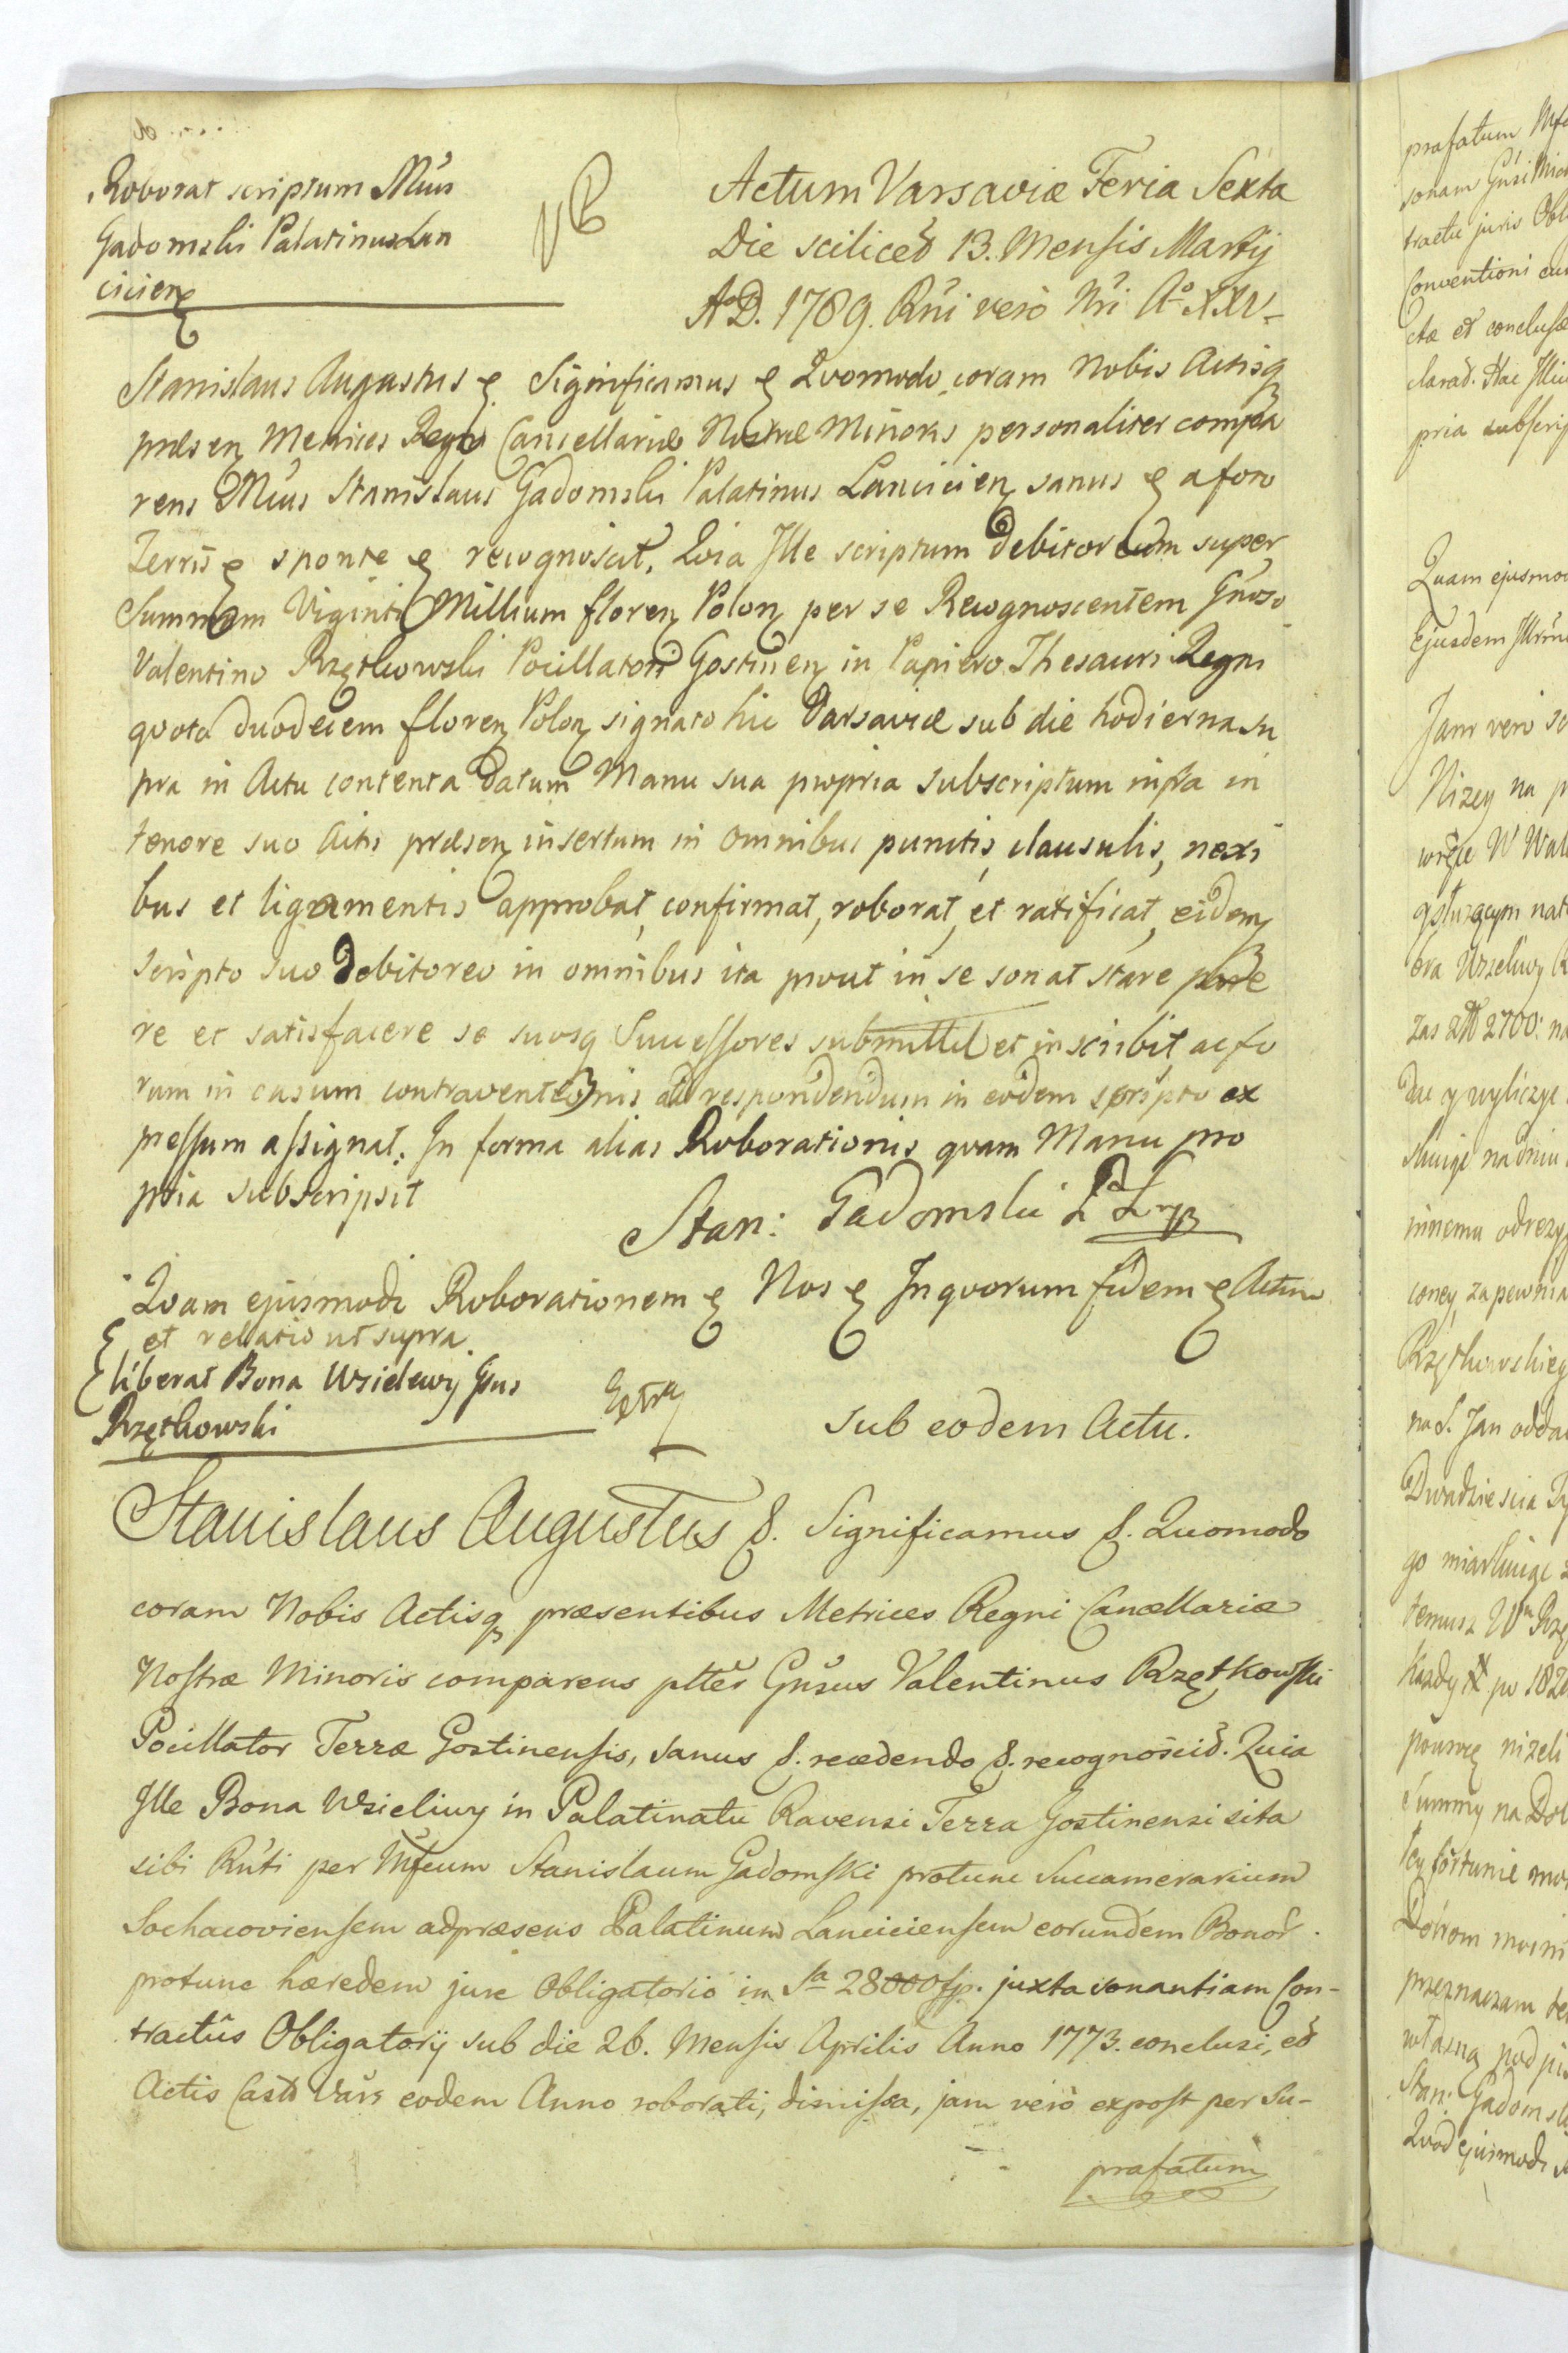 Roborat scriptum Mŭus
Gadomski Palatinus Lan
cicien
NB
Actum Varsaviæ Feria Sexta
Die scilicet 13. Mensis Martij
A D. 1789. Rni vero Nri A° XXV
Stanislaus Augustus & Significamus & Quomodo coram Nobis Actisq
præsen Metrices Regni Cancellariæ Nostræ Minoris personaliter compa
rens Mŭus Stanislaus Gadomski Palatinus Lancicien sanus & a foro
Terris & sponte & recognoscit. Quia Ille scriptum debitoreum super
Summam Viginti Millium floren Polon per se Recognoscentem Gnoso
Valentino Rzętkowski Pocillatori Gostinen in Papiero Thesauri Regni
quota duodecim floren Polon signato hic Varsaviæ sub die hodierna su
pra in Actu contenta datum Manu sua propria subscriptum infra in
tenore suo Actis præsen insertum in omnibus punctis, clausulis, nexi
bus et ligamentis approbat, confirmat, roborat, et ratificat, eidemq
Scripto suo debitoreo in omnibus ita prout in se sonat stare pare
re et satisfacere se suosq Successores submittit et inscribit ac fo
rum in casum contraventionis ad respondendum in eodem scripto ex
pressum assignat. In forma alias Roborationis quam Manu pro
pria subscripsit
Stan: Gadomski
Quam ejusmodi Roborationem & Nos & In quorum fidem & Actum
& et relatio ut supra.
liberat Bona Wsieliwy Gnus
Rzętkowski
Extra
Sub eodem Actu.
Stanislaus Augustus &. Significamus &. Quomodo
coram Nobis Actisq præsentibus Metrices Regni Cancellariæ
Nostræ Minoris comparens plter Gnsus Valentinus Rzętkowski
Pocillator Terræ Gostinensis, sanus &. recedendo &. recognoscit. Quia
Ille Bona Wsieliwy in Palatinatu Ravensi Terra Gostinensi sita
sibi Rnti per Mfcum Stanislaum Gadomski protunc Succamerarium
Sochacoviensem adpræsens Palatinum Lanciciensem eorundem Bonor.
protunc hæredem jure Obligatorio in Sa 28000 fp. juxta sonantiam Con-
tractûs Obligatorij sub die 26. Mensis Aprilis Anno 1773. conclusi, et
Actis Castr Vars eodem Anno roborati, dimissa, jam vero expost per Su-
præfatum
præfatum
sonam
tractu juris
Conventioni
ctæ et conclusæ
clarat. Hac
pria
Quam
Ejusdem
Jam vero
Niżey na
era
zas 2700: na
ninemu
coney zapewnia
na S. Jan
Dwadziescia
Każdy po
ponowę niżeli
Summy na
tey fortunie
przeznaczam
własną
Stan:
Quod ejusmodi